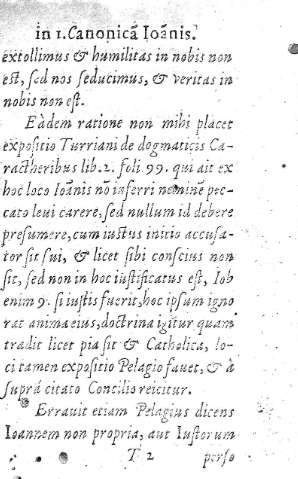 in 1. Canonicã Ioãnis.
extollimus & humilitas in nobis non
est, sed nos seducimus, & veritas in
nobis non est.
Eâdem ratione non mihi placet
expositio Turriani de dogmaticis Ca-
ractheribus lib. 2. foli. 99. qui ait ex
hoc loco Ioãnis nõ inferri neminẽ pec-
cato leui carere, sed nullum id debere
presumere, cum iustus initio accusa-
tor sit sui, & licet sibi conscius non
sit, sed non in hoc iustificatus est, Iob
enim 9. si iustus fuerit, hoc ipsum igno
rat anima eius, doctrina igĩtur quam
tradit licet pia sit & Catholica, lo-
ci tamen expositio Pelagio fauet, & à
suprá citato Concilio reicitur.
Errauit etiam Pelagius dicens
Ioannem non propria, aut Iustorum
T 2 perso